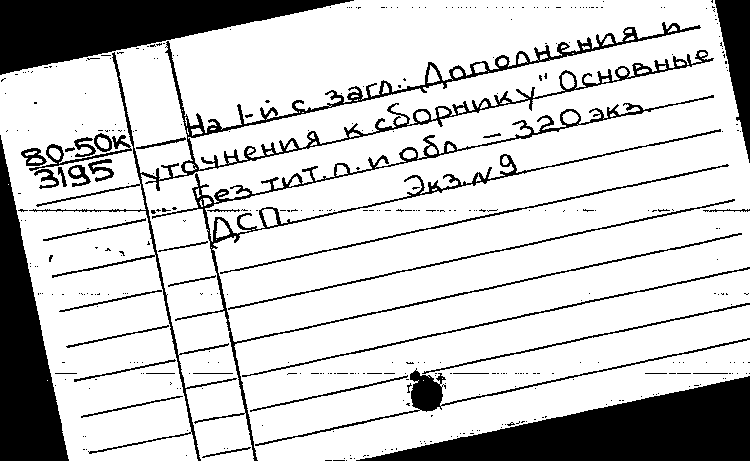 80-50к
3195
На 1-й с. загл.: Дополнения и
уточнения к сборнику "Основные
... Без тит. л. и обл. – 320 экз.
ДСП. Экз. № 9